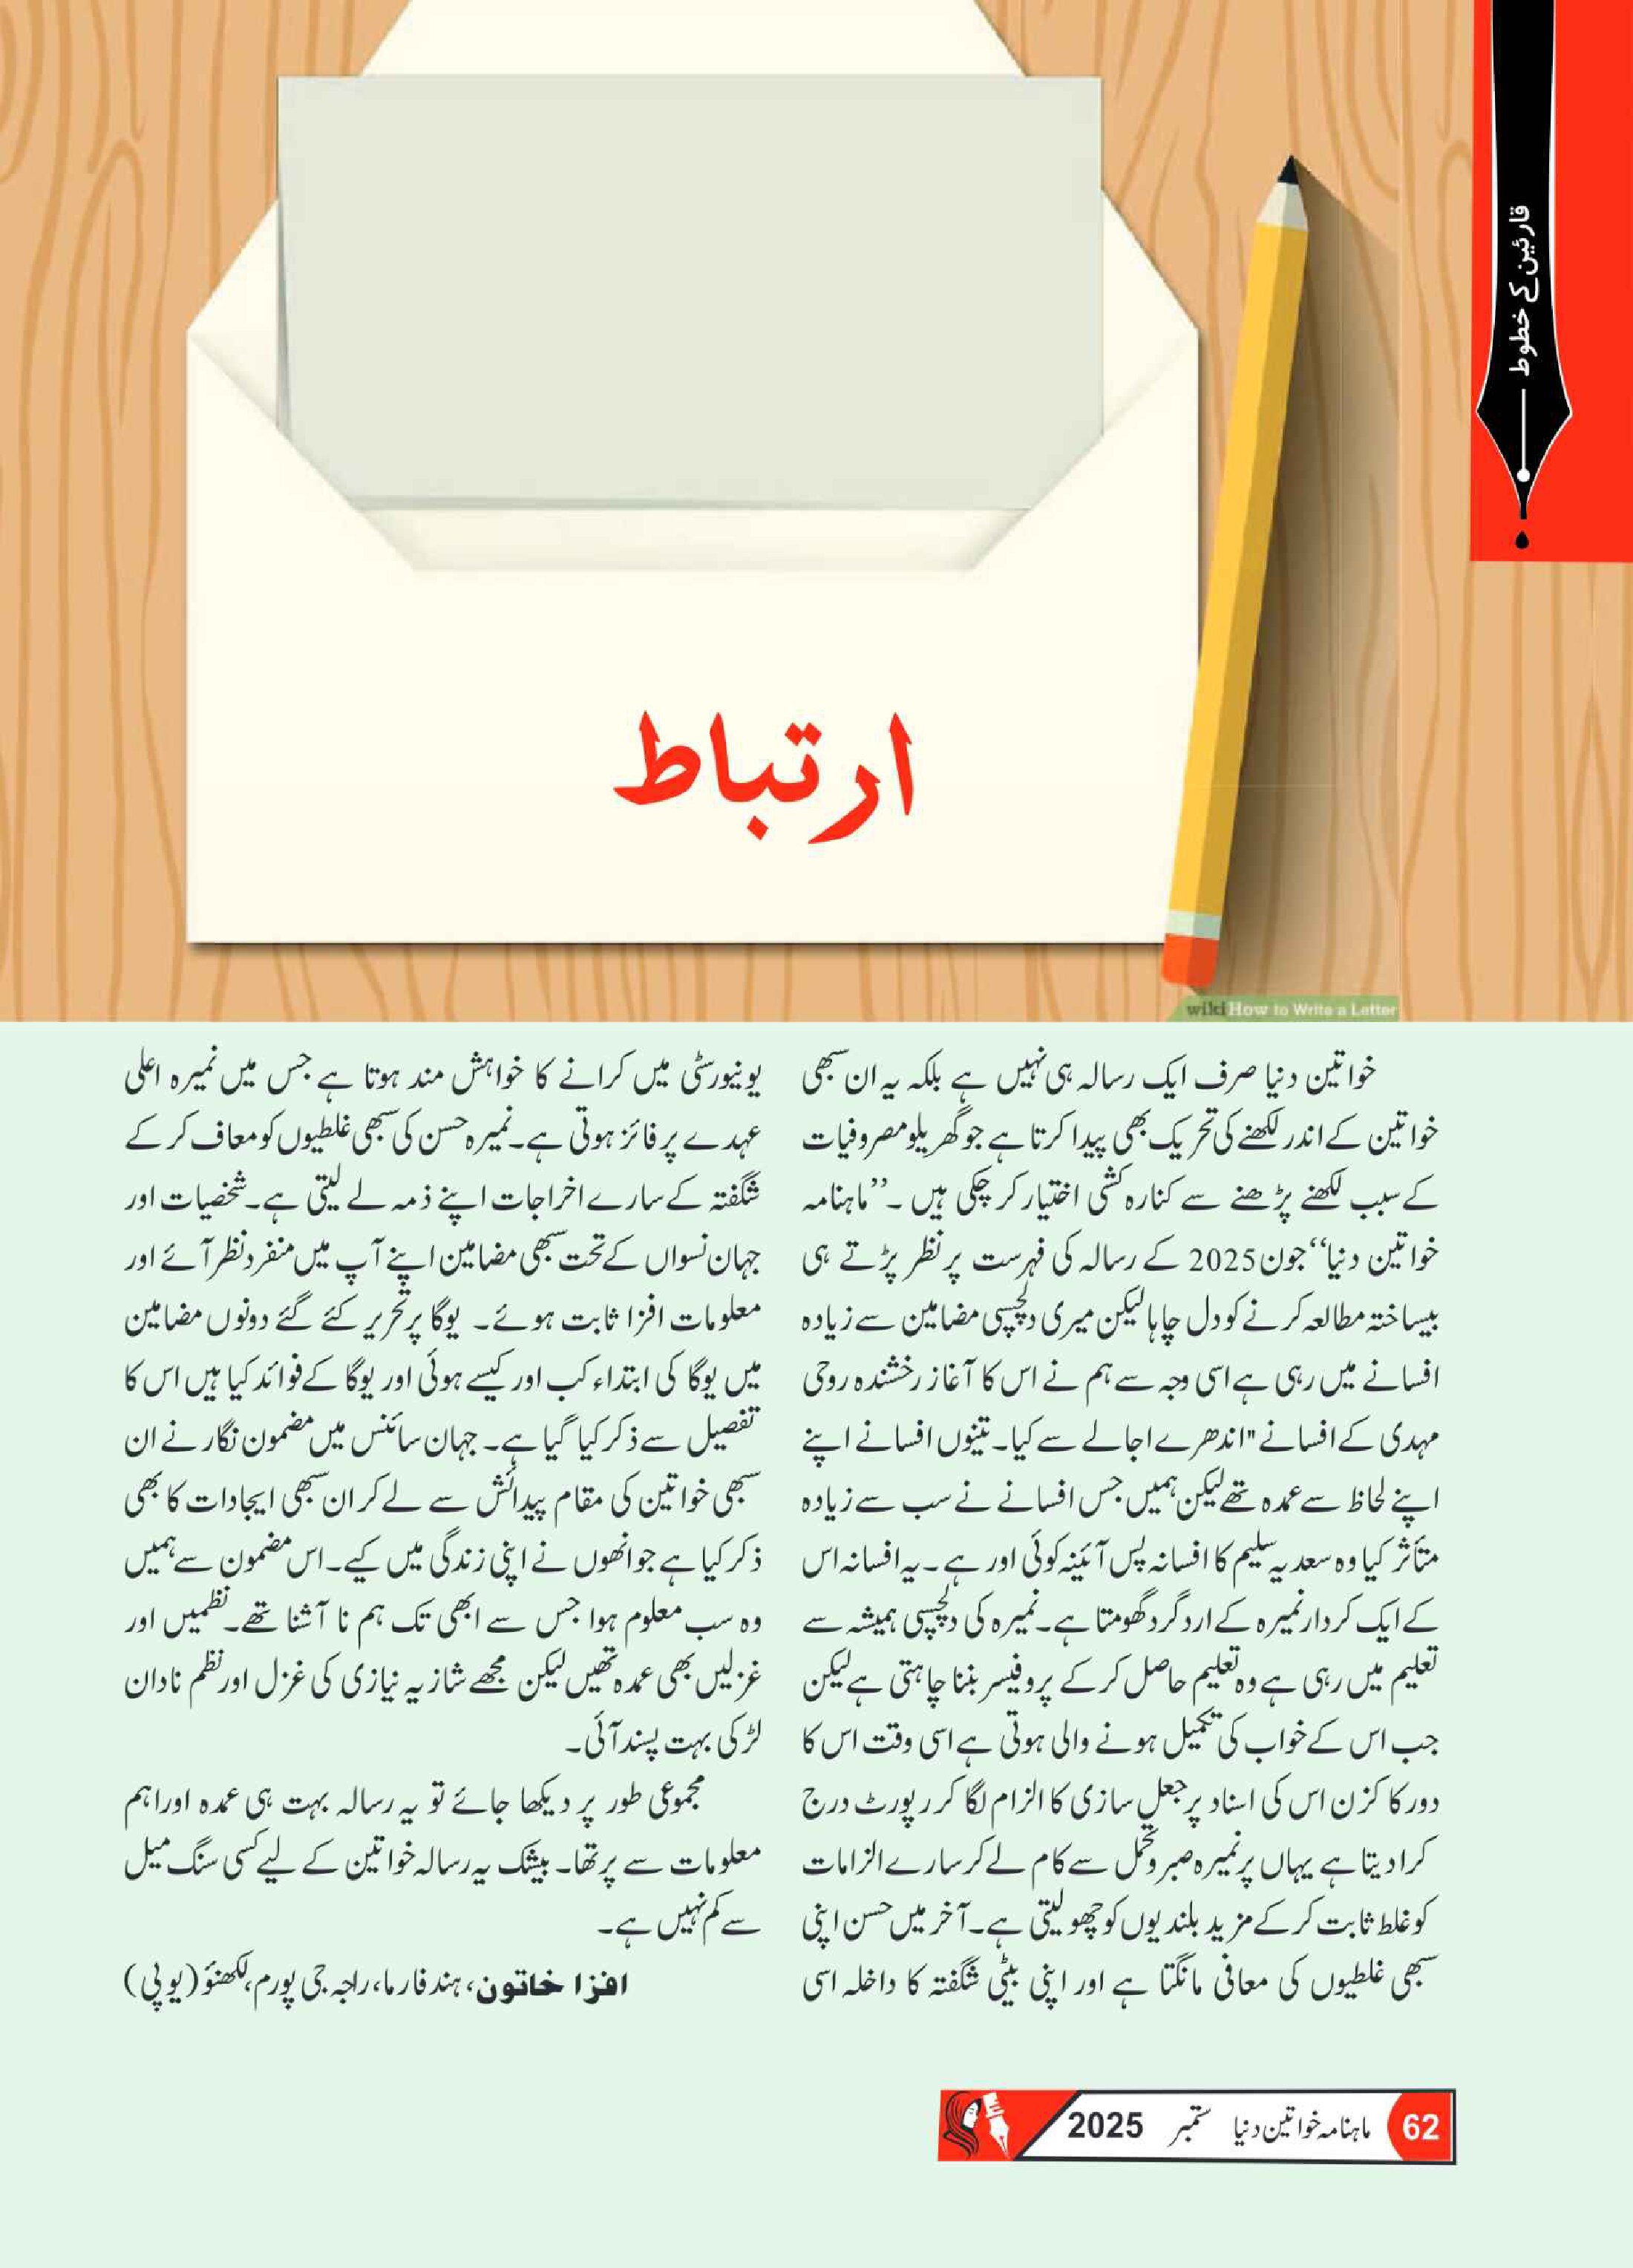 قارئین کے خطوط
ارتباط
wikiHow to Write a Letter
خواتین دنیا صرف ایک رسالہ ہی نہیں ہے بلکہ یہ ان سبھی
خواتین کے اندر لکھنے کی تحریک بھی پیدا کرتا ہے جو گھریلو مصروفیات
کے سبب لکھنے پڑھنے سے کنارہ کشی اختیار کر چکی ہیں۔ ’’ماہنامہ
خواتین دنیا‘‘ جون 2025 کے رسالہ کی فہرست پر نظر پڑتے ہی
بیساختہ مطالعہ کرنے کو دل چاہا لیکن میری دلچسپی مضامین سے زیادہ
افسانے میں رہی ہے اسی وجہ سے ہم نے اس کا آغاز رخشندہ روحی
مہدی کے افسانے "اندھرے اجالے سے کیا۔ تینوں افسانے اپنے
اپنے لحاظ سے عمدہ تھے لیکن ہمیں جس افسانے نے سب سے زیادہ
متأثر کیا وہ سعدیہ سلیم کا افسانہ پس آئینہ کوئی اور ہے۔ یہ افسانہ اس
کے ایک کردار نمیرہ کے ارد گرد گھومتا ہے۔ نمیرہ کی دلچسپی ہمیشہ سے
تعلیم میں رہی ہے وہ تعلیم حاصل کرکے پروفیسر بننا چاہتی ہے لیکن
جب اس کے خواب کی تکمیل ہونے والی ہوتی ہے اسی وقت اس کا
دور کا کزن اس کی اسناد پر جعل سازی کا الزام لگا کر رپورٹ درج
کرا دیتا ہے یہاں پر نمیرہ صبر و تحمل سے کام لے کر سارے الزامات
کو غلط ثابت کرکے مزید بلندیوں کو چھو لیتی ہے۔ آخر میں حسن اپنی
سبھی غلطیوں کی معافی مانگتا ہے اور اپنی بیٹی شگفتہ کا داخلہ اسی
یونیورسٹی میں کرانے کا خواہش مند ہوتا ہے جس میں نمیرہ اعلی
عہدے پر فائز ہوتی ہے۔ نمیرہ حسن کی سبھی غلطیوں کو معاف کر کے
شگفتہ کے سارے اخراجات اپنے ذمہ لے لیتی ہے۔ شخصیات اور
جہان نسواں کے تحت سبھی مضامین اپنے آپ میں منفرد نظر آئے اور
معلومات افزا ثابت ہوئے۔ یوگا پر تحریر کئے گئے دونوں مضامین
میں یوگا کی ابتداء کب اور کیسے ہوئی اور یوگا کے فوائد کیا ہیں اس کا
تفصیل سے ذکر کیا گیا ہے۔ جہان سائنس میں مضمون نگار نے ان
سبھی خواتین کی مقام پیدائش سے لے کر ان سبھی ایجادات کا بھی
ذکر کیا ہے جو انھوں نے اپنی زندگی میں کیے۔ اس مضمون سے ہمیں
وہ سب معلوم ہوا جس سے ابھی تک ہم نا آشنا تھے۔ نظمیں اور
غزلیں بھی عمدہ تھیں لیکن مجھے شازیہ نیازی کی غزل اور نظم نادان
لڑکی بہت پسند آئی۔
مجموعی طور پر دیکھا جائے تو یہ رسالہ بہت ہی عمدہ اور اہم
معلومات سے پر تھا۔ بیشک یہ رسالہ خواتین کے لیے کسی سنگ میل
سے کم نہیں ہے۔
افزا خاتون، ہند فارما، راجہ جی پورم، لکھنؤ (یوپی)
62 ماہنامہ خواتین دنیا ستمبر 2025